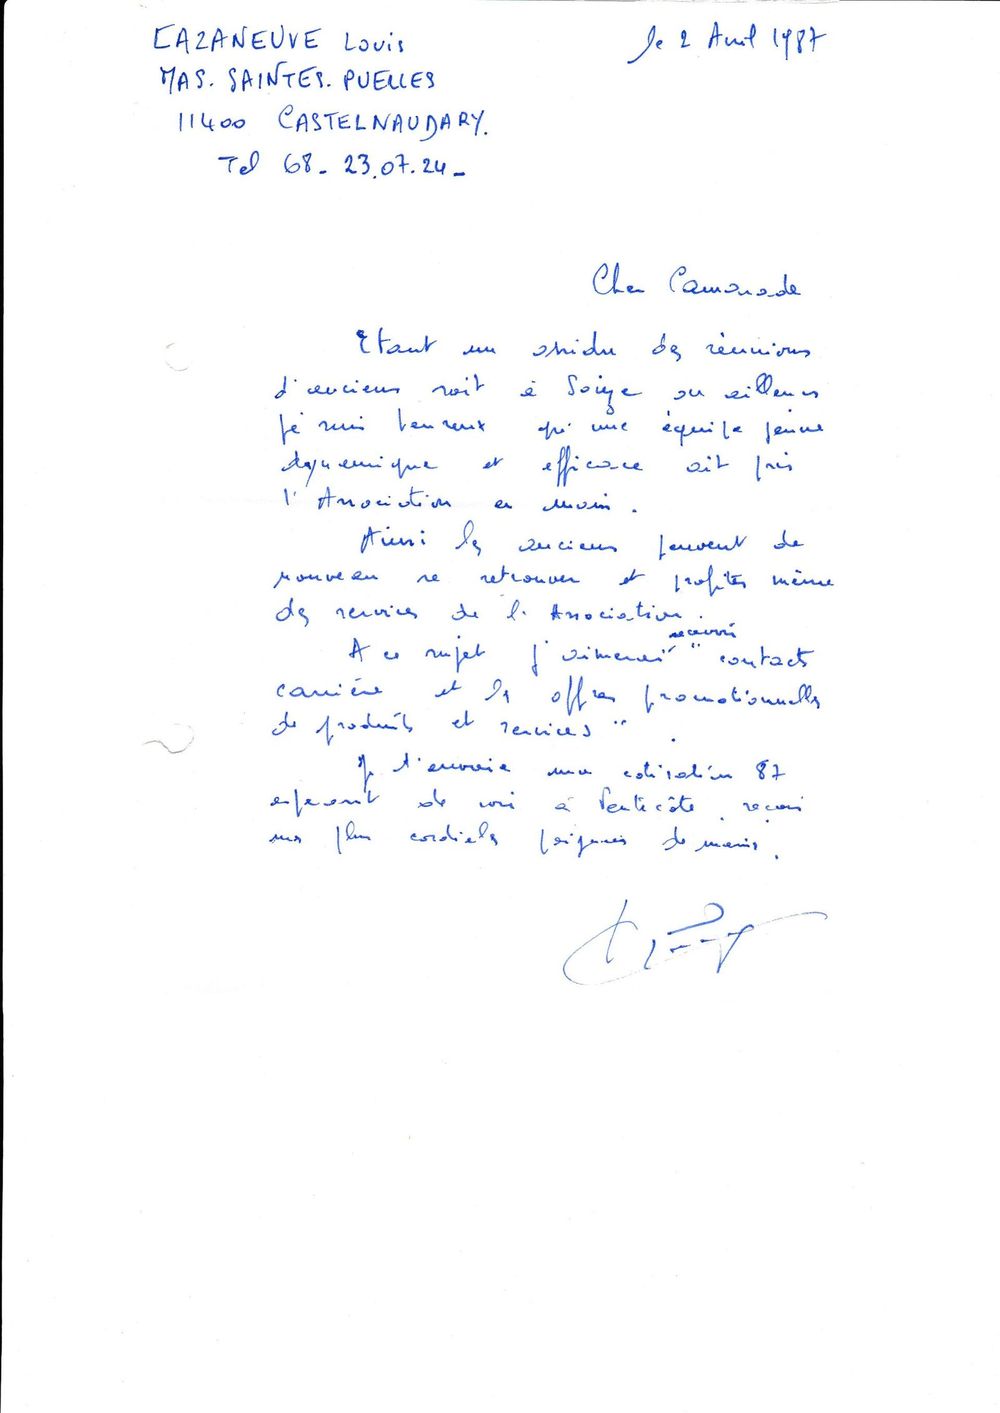 CAZANEUVE Louis
le 2 Avril 1987
MAS. SAINTES. PUELLES
11400 CASTELNAUDARY.
Tel 68_ 23.07.24_
Cher Camarade
Etant un assidu des réunions
d'anciens soit à Sorèze ou ailleurs
je suis heureux qu'une équipe jeune
dynamique et efficace ait pris
l'Association en main.
Ainsi les anciens peuvent de
nouveau se retrouver et profiter même
des services de l'Association.
A ce sujet j'aimerais recevoir "contacts
carrière et les offres promotionnelles
de produits et services".
Je t'envoie ma cotisation 87
espérant de voir à Pentecôte. reçois
mes plus cordiales poignées de mains.